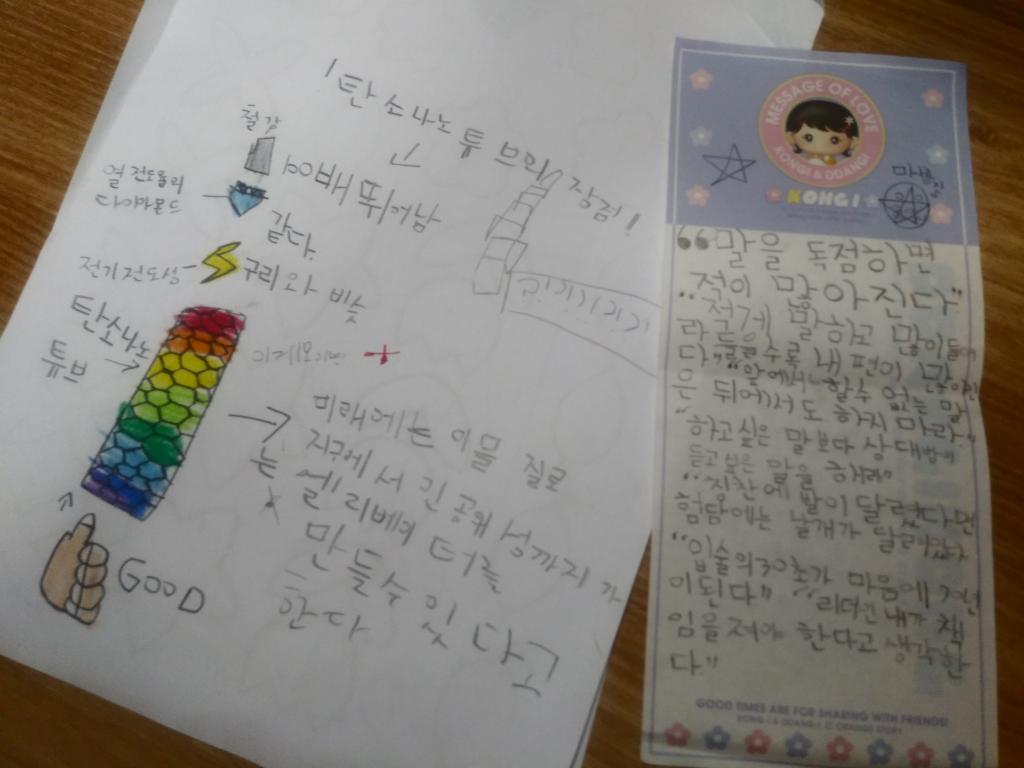 탄소나노 튜브의 장점!
철강
100배 뛰어남
열 전도율이
다이아몬드
같다.
전기전도성
구리와 비슷
탄소나노
튜브
미래에는 이물 질로
지구에서 긴 공궤 성까지 가
는 엘리베이터를
만들수 있 다고
한다
GOOD
MESSAGE OF LOVE
KONGI & DDANGI
KONGI
“말을 독점하면
적이 많아진다”
적게 말하고 많이들어
라 들을수록 내 편이 많아진
다” “앞에서 할수 없는 말
은 뒤에서도 하지 마라”
“하고싶은 말보다 상대방이
듣고싶은 말을 해라”
“칭찬에 발이 달렸다면
험담에는 날개가 달려있다
“입술의30초가 마음에 30년
이된다” “리더는 내가 책
임을 져야 한다고 생각한
다.”
GOOD TIMES ARE FOR SHARING WITH FRIENDS!
KONG-I & DDANG-I © ORANGE STORY